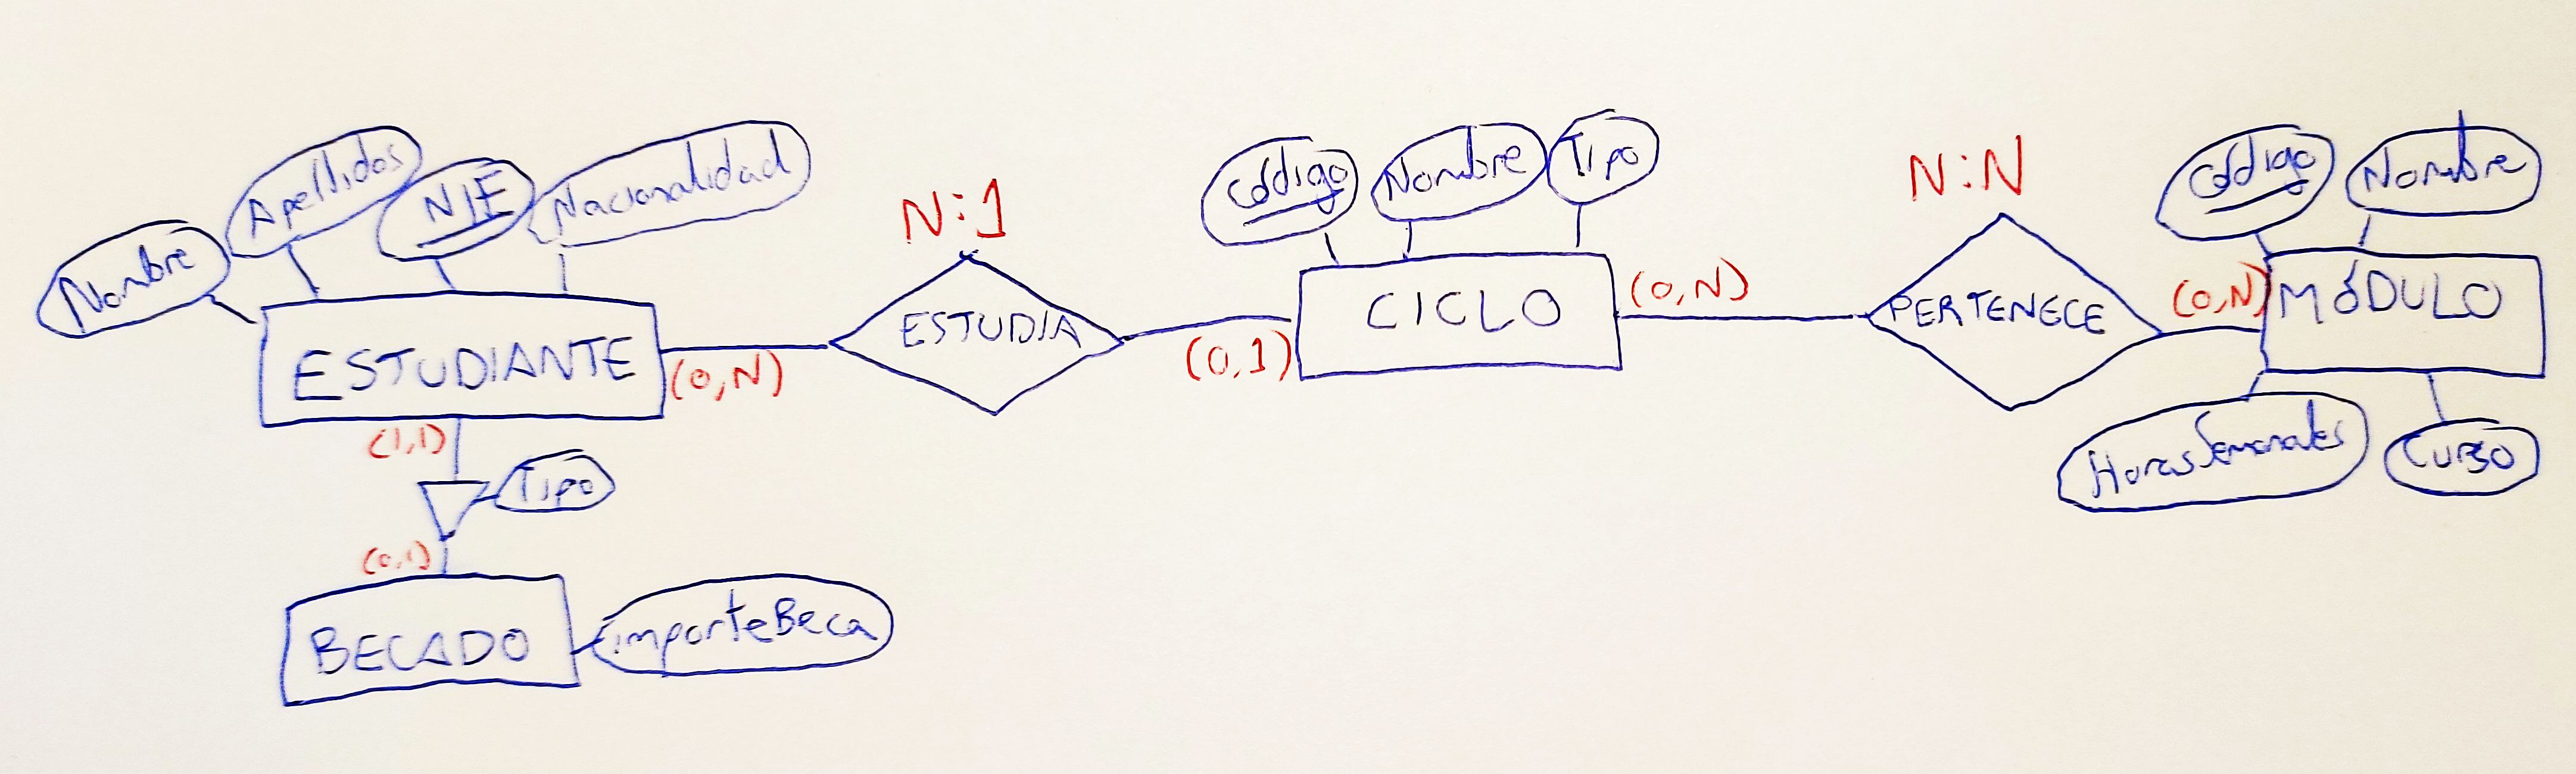 Nombre
Apellidos
NIE
Nacionalidad
ESTUDIANTE
(0,N)
N:1
ESTUDIA
(0,1)
Código
Nombre
Tipo
CICLO
(0,N)
N:N
PERTENECE
(0,N)
Código
Nombre
MÓDULO
HorasSemanales
Curso
(1,1)
Tipo
(0,1)
BECADO
importeBeca